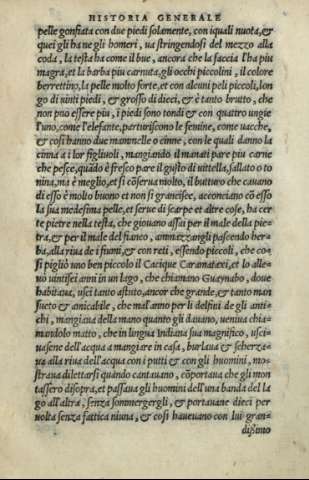 HISTORIA GENERALE
pelle gonfiata con due piedi solamente, con iquali nuota, &
quei gli ha ne gli homeri, ua stringendosi del mezzo alla
coda, la testa ha come il bue, ancora che la faccia l'ha piu
magra, et la barba piu carnuta, gli occhi piccolini, il colore
berrettino, la pelle molto forte, et con alcuni peli piccoli, lon
go di uinti piedi, & grosso di dieci, & è tanto brutto, che
non puo essere piu, i piedi sono tondi & con quattro ungie
l'uno, come l'elefante, parturiscono le femine, come uacche,
& cosi hanno due mammelle o cinne, con le quali danno la
cinna a i lor figliuoli, mangiando il manati pare piu carne
che pesce, quādo è fresco pare il gusto di uittella, sallato o to
nina, ma è meglio, et si cōserua molto, il butturo che cauano
di esso è molto buono et non si grancisce, acconciano cō esso
la sua medesima pelle, et serue di scarpe et altre cose, ha cer
te pietre nella testa, che giouano assai per il male della pie-
tra, & per il male del fianco, ammazzangli pascendo her-
ba, alla riua de i fiumi, & con reti, essendo piccoli, che co-
si pigliò uno ben piccolo il Cacique Caramataxi, et lo alle-
uò uintisei anni in un lago, che chiamano Guaynabo, doue
habitaua, usci tanto astuto, ancor che grande, & tanto man
sueto & amicabile, che mal'anno per li delfini de gli anti-
chi, mangiaua della mano quanto gli dauano, ueniua chia-
mandolo matto, che in lingua Indiana sua magnifico, usci-
uasene dell'acqua a mangiare in casa, burlaua & scherza-
ua alla riua dell'acqua con i putti & con gli huomini, mo-
straua dilettarsi quando cantauano, cōportaua che gli mon
tassero disopra, et passaua gli huomini dell'una banda del la
go all'altra, senza sommergergli, & portauane dieci per
uolta senza fattica niuna, & cosi haueuano con lui gran-
dissimo